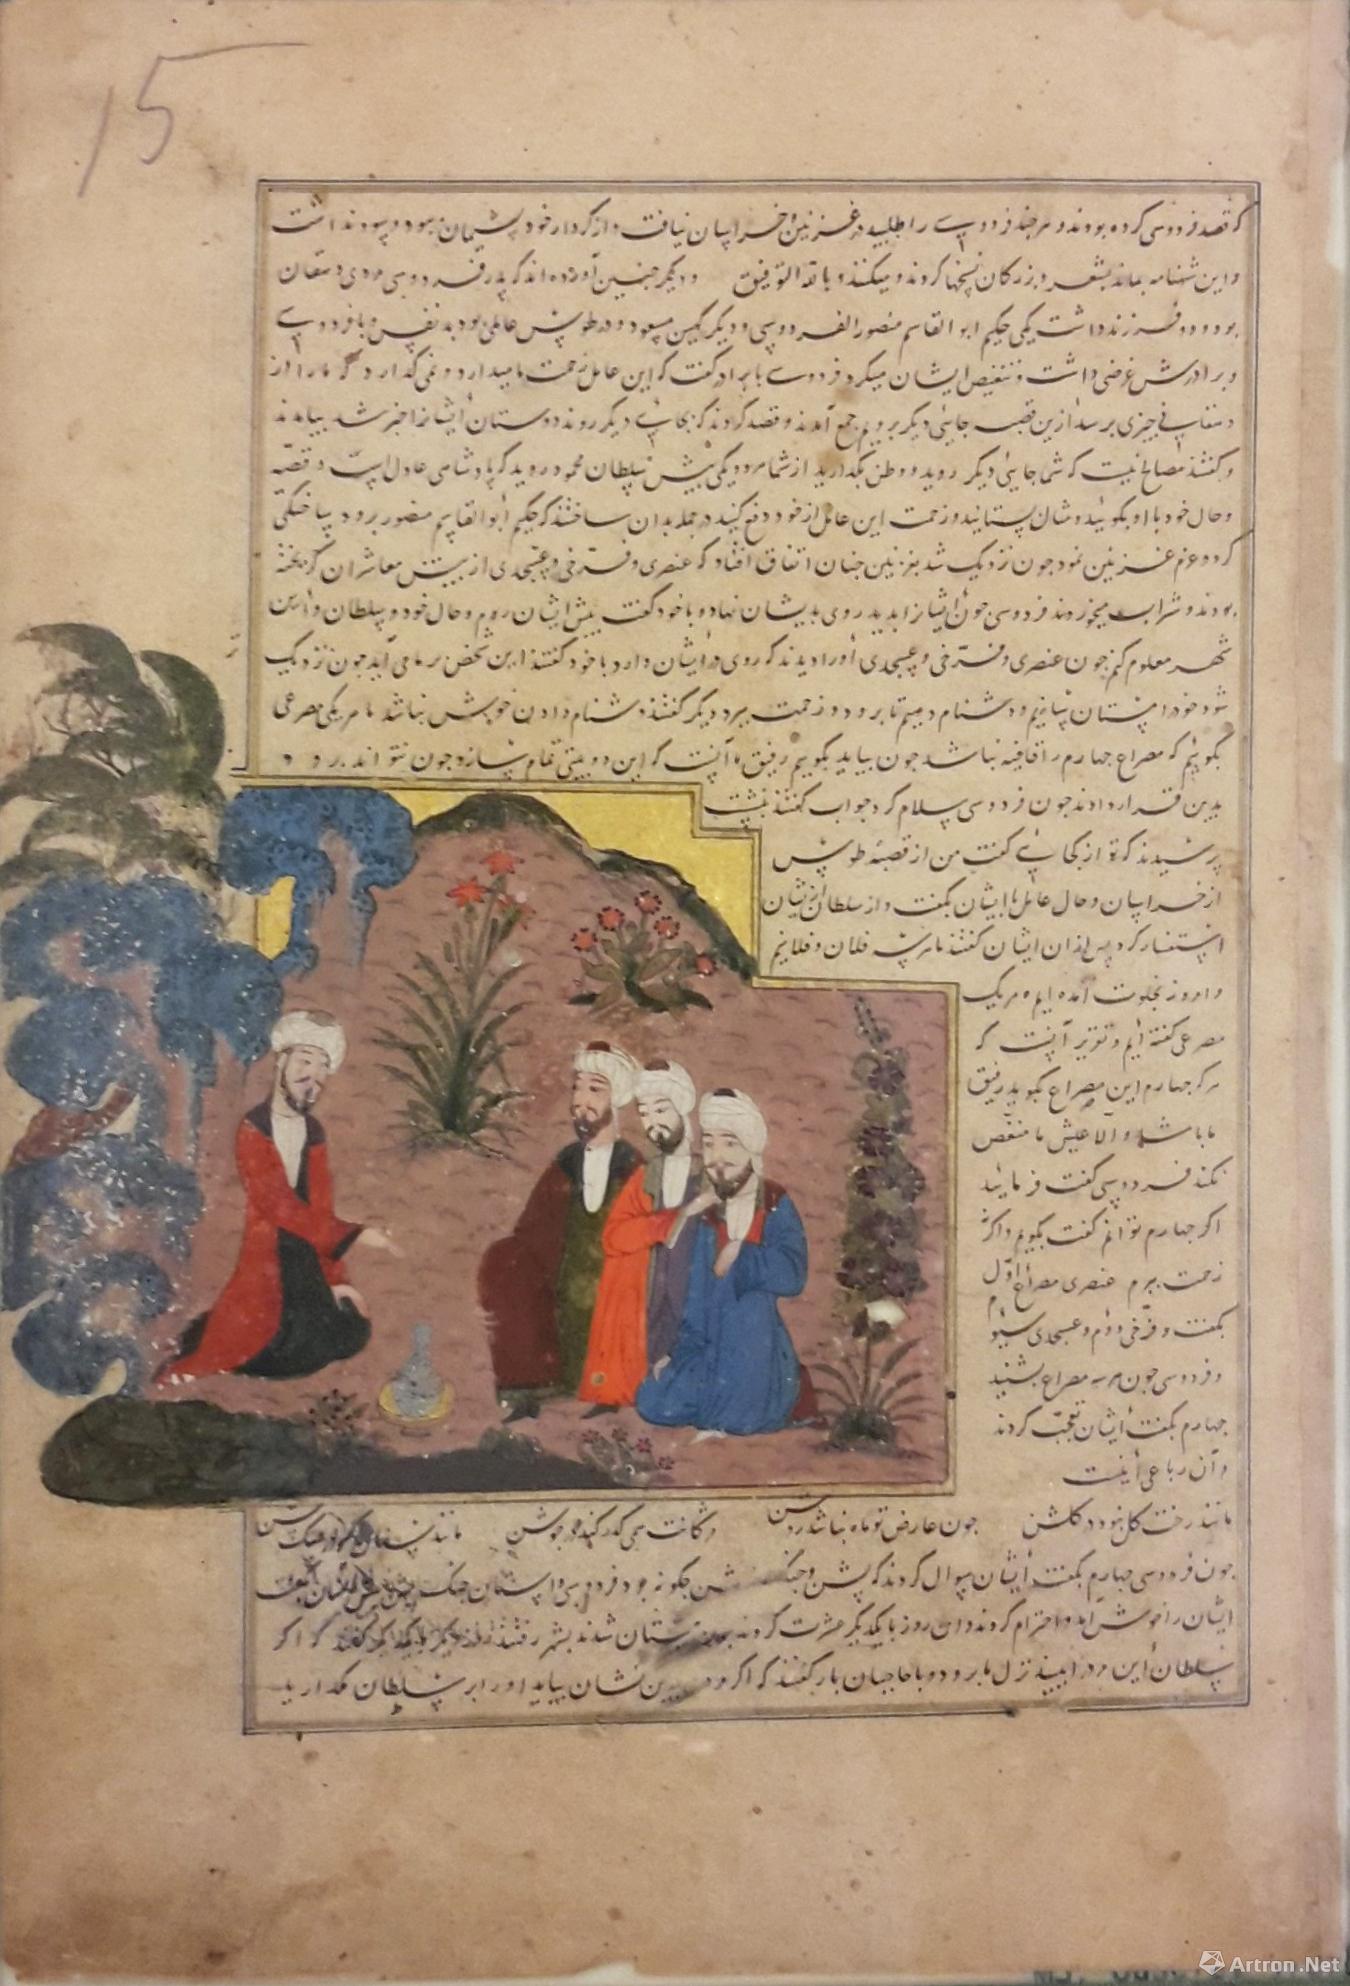 15
که قصد فردوسی کرده بودند و هرچند فردوسی را طلبید در غزنین و خراسان نیافت و از کردار خود پشیمان بود و سود نداشت
و این شهنامه بماند بشعر و بزرکان نسخها کردند و میکنند و بالله التوفیق و دیکر جنین آورده اند که بدر فردوسی مردی دهقان
بود و دو فرزند داشت یکی حکیم ابو القاسم منصور الفردوسی و دیکر کمین مسعود و در طوس عاملی بود بدنفس و با فردوسی
و برادرش غرضی داشت و تنغیص ایشان میکرد فردوسی با برادر کفت که این عامل زحمت ما میدارد و نمی کذارد که ما را از
دهقانی چیزی برسد ازین قصبه جایی دیکر برویم جمع آمدند و قصد کردند که بجایی دیکر روند دوستان ایشانرا خبر شد بیامدند
و کفتند مصالح نیست که شما جایی دیکر روید و وطن بکذارید از شما هر دو یکی پیش سلطان محمود روید که پادشاهی عادل است و قصه
و حال خود با او بکویید و نشان بستانید و زحمت این عامل از خود دفع کنید در جمله بدان ساختند که حکیم ابو القاسم منصور برود بساختکی
کرد و عزم غزنین نمود جون نزدیک شد بغزنین جنان اتفاق افتاد که عنصری و فرخی و عسجدی از پیش معاشران کریخته
بودند و شراب میخوردند فردوسی جون ایشانرا بدید روی بدیشان نهاد و با خود کفت پیش ایشان روم و حال خود و سلطان و این
شهر معلوم کنم جون عنصری و فرخی و عسجدی او را دیدند که روی در ایشان دارد با خود کفتند این شخص بر ما می آید جون نزدیک
شود خود را مستان سازیم و دشنام دهیم تا برود و زحمت ببرد دیکر کفتند دشنام دادن خوش نباشد ما هر یکی مصرعی
بکوییم که مصراع چهارم را قافیه نباشد جون بیاید بکوییم رفیق ما آنست که این دو بیتی تمام سازد جون نتواند برود
بدین قرار دادند جون فردوسی سلام کرد جواب کفتند بنشست
پرسیدند که تو از کجایی کفت من از قصبه طوس
از خراسان و حال عامل با ایشان بکفت و از سلطان از ایشان
استفسار کرد پس از آن ایشان کفتند ما هر سه فلان و فلانیم
و امروز بخلوت آمده ایم و هر یک
مصرعی کفته ایم و تقریر آنست که
هر که چهارم این مصراع بکوید رفیق
ما باشد و الا عیش ما منغص
نکند فردوسی کفت فرمایید
اکر چهارم توانم کفت بکویم و اکر نه
زحمت ببرم عنصری مصراع اول
بکفت و فرخی دوم و عسجدی سیوم
و فردوسی جون هر سه مصراع بشنید
چهارم بکفت ایشان تعجب کردند
و آن رباعی اینست
جون عارض تو ماه نباشد روشن مانند رخت کل نبود در کلشن مژکانت همی کذر کند در جوشن مانند سنان کیو در جنک پشن
جون فردوسی چهارم بکفت ایشان سوال کردند که پشن و جنک پشن جکونه بود فردوسی داستان جنک پشن
ایشان را خوش آمد و احترام کردند و آن روز با یکدیکر عشرت کردند شدند بشهر رفتند کفتند که اکر
سلطان این مرد را ببیند نزل ما برود و با حاجبان بار کفتند که اکر مردی بدین نشان بیاید او را بر سلطان مکذارید
Artron.Net